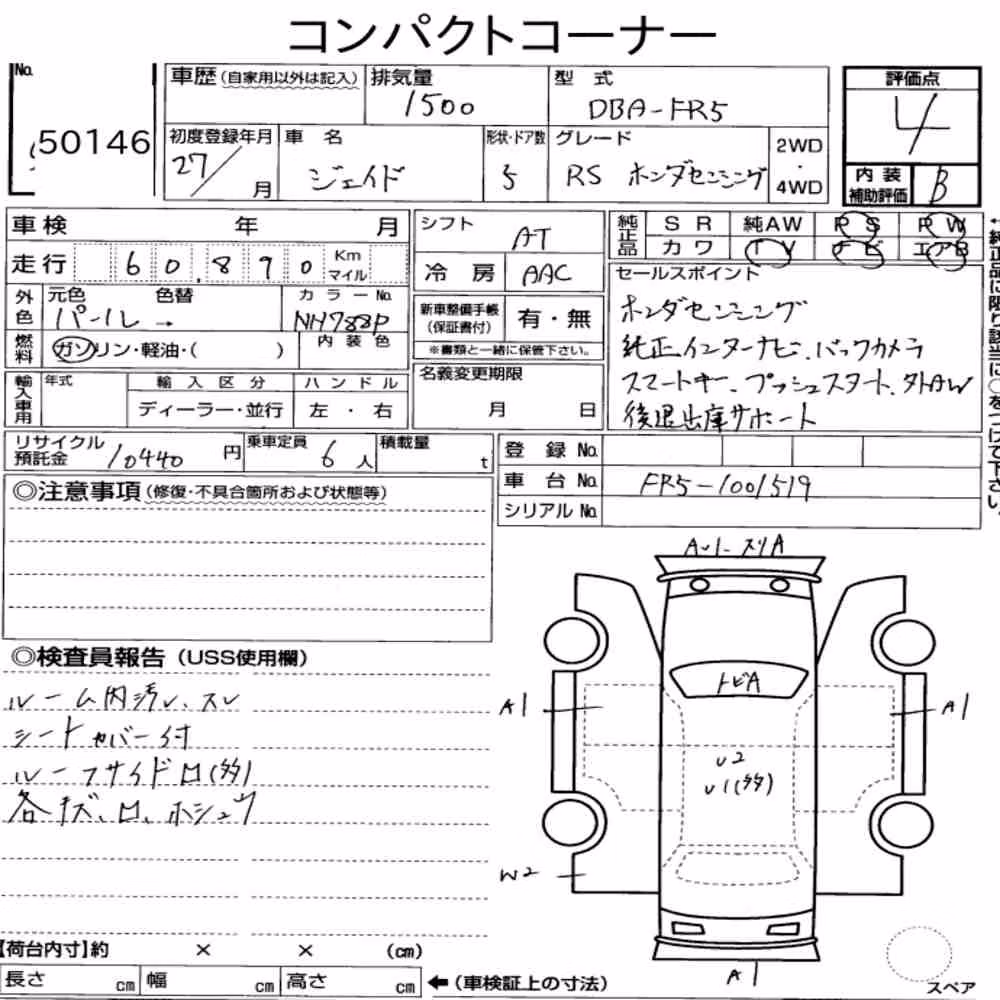 コンパクトコーナー
No.
50146
車歴(自家用以外は記入)
排気量
1500
型 式
DBA-FR5
評価点
4
初度登録年月
27/ 月
車 名
ジェイド
形状・ドア数
5
グレード
RS ホンダセンシング
2WD
・
4WD
内装
補助評価
B
車検 年 月
シフト
AT
純正品
SR 純AW PS PW
カワ TV ナビ エアB
走行 60,890 Km
マイル
冷房
AAC
セールスポイント
ホンダセンシング
純正インターナビ、バックカメラ
スマートキー、プッシュスタート、外AW
後退出庫サポート
外色
元色 色替
パール→
カラーNo.
NH788P
新車整備手帳
(保証書付)
有・無
※書類と一緒に保管下さい。
燃料
ガソリン・軽油・( )
内装色
輸入車用
年式
輸入区分
ハンドル
ディーラー・並行
左・右
名義変更期限
月 日
リサイクル
預託金
10440 円
乗車定員
6 人
積載量
t
登録No.
車台No.
FR5-1001519
シリアルNo.
◎注意事項(修復・不具合箇所および状態等)
◎検査員報告(USS使用欄)
ルーム内汚レ、スレ
シートカバー付
ルーフサイド凹(多)
各キズ、凹、ホシュウ
AU1-スリA
トビA
A1
A1
U2
U1(多)
W2
A1
スペア
【荷台内寸】約 × × (cm)
長さ cm 幅 cm 高さ cm
←(車検証上の寸法)